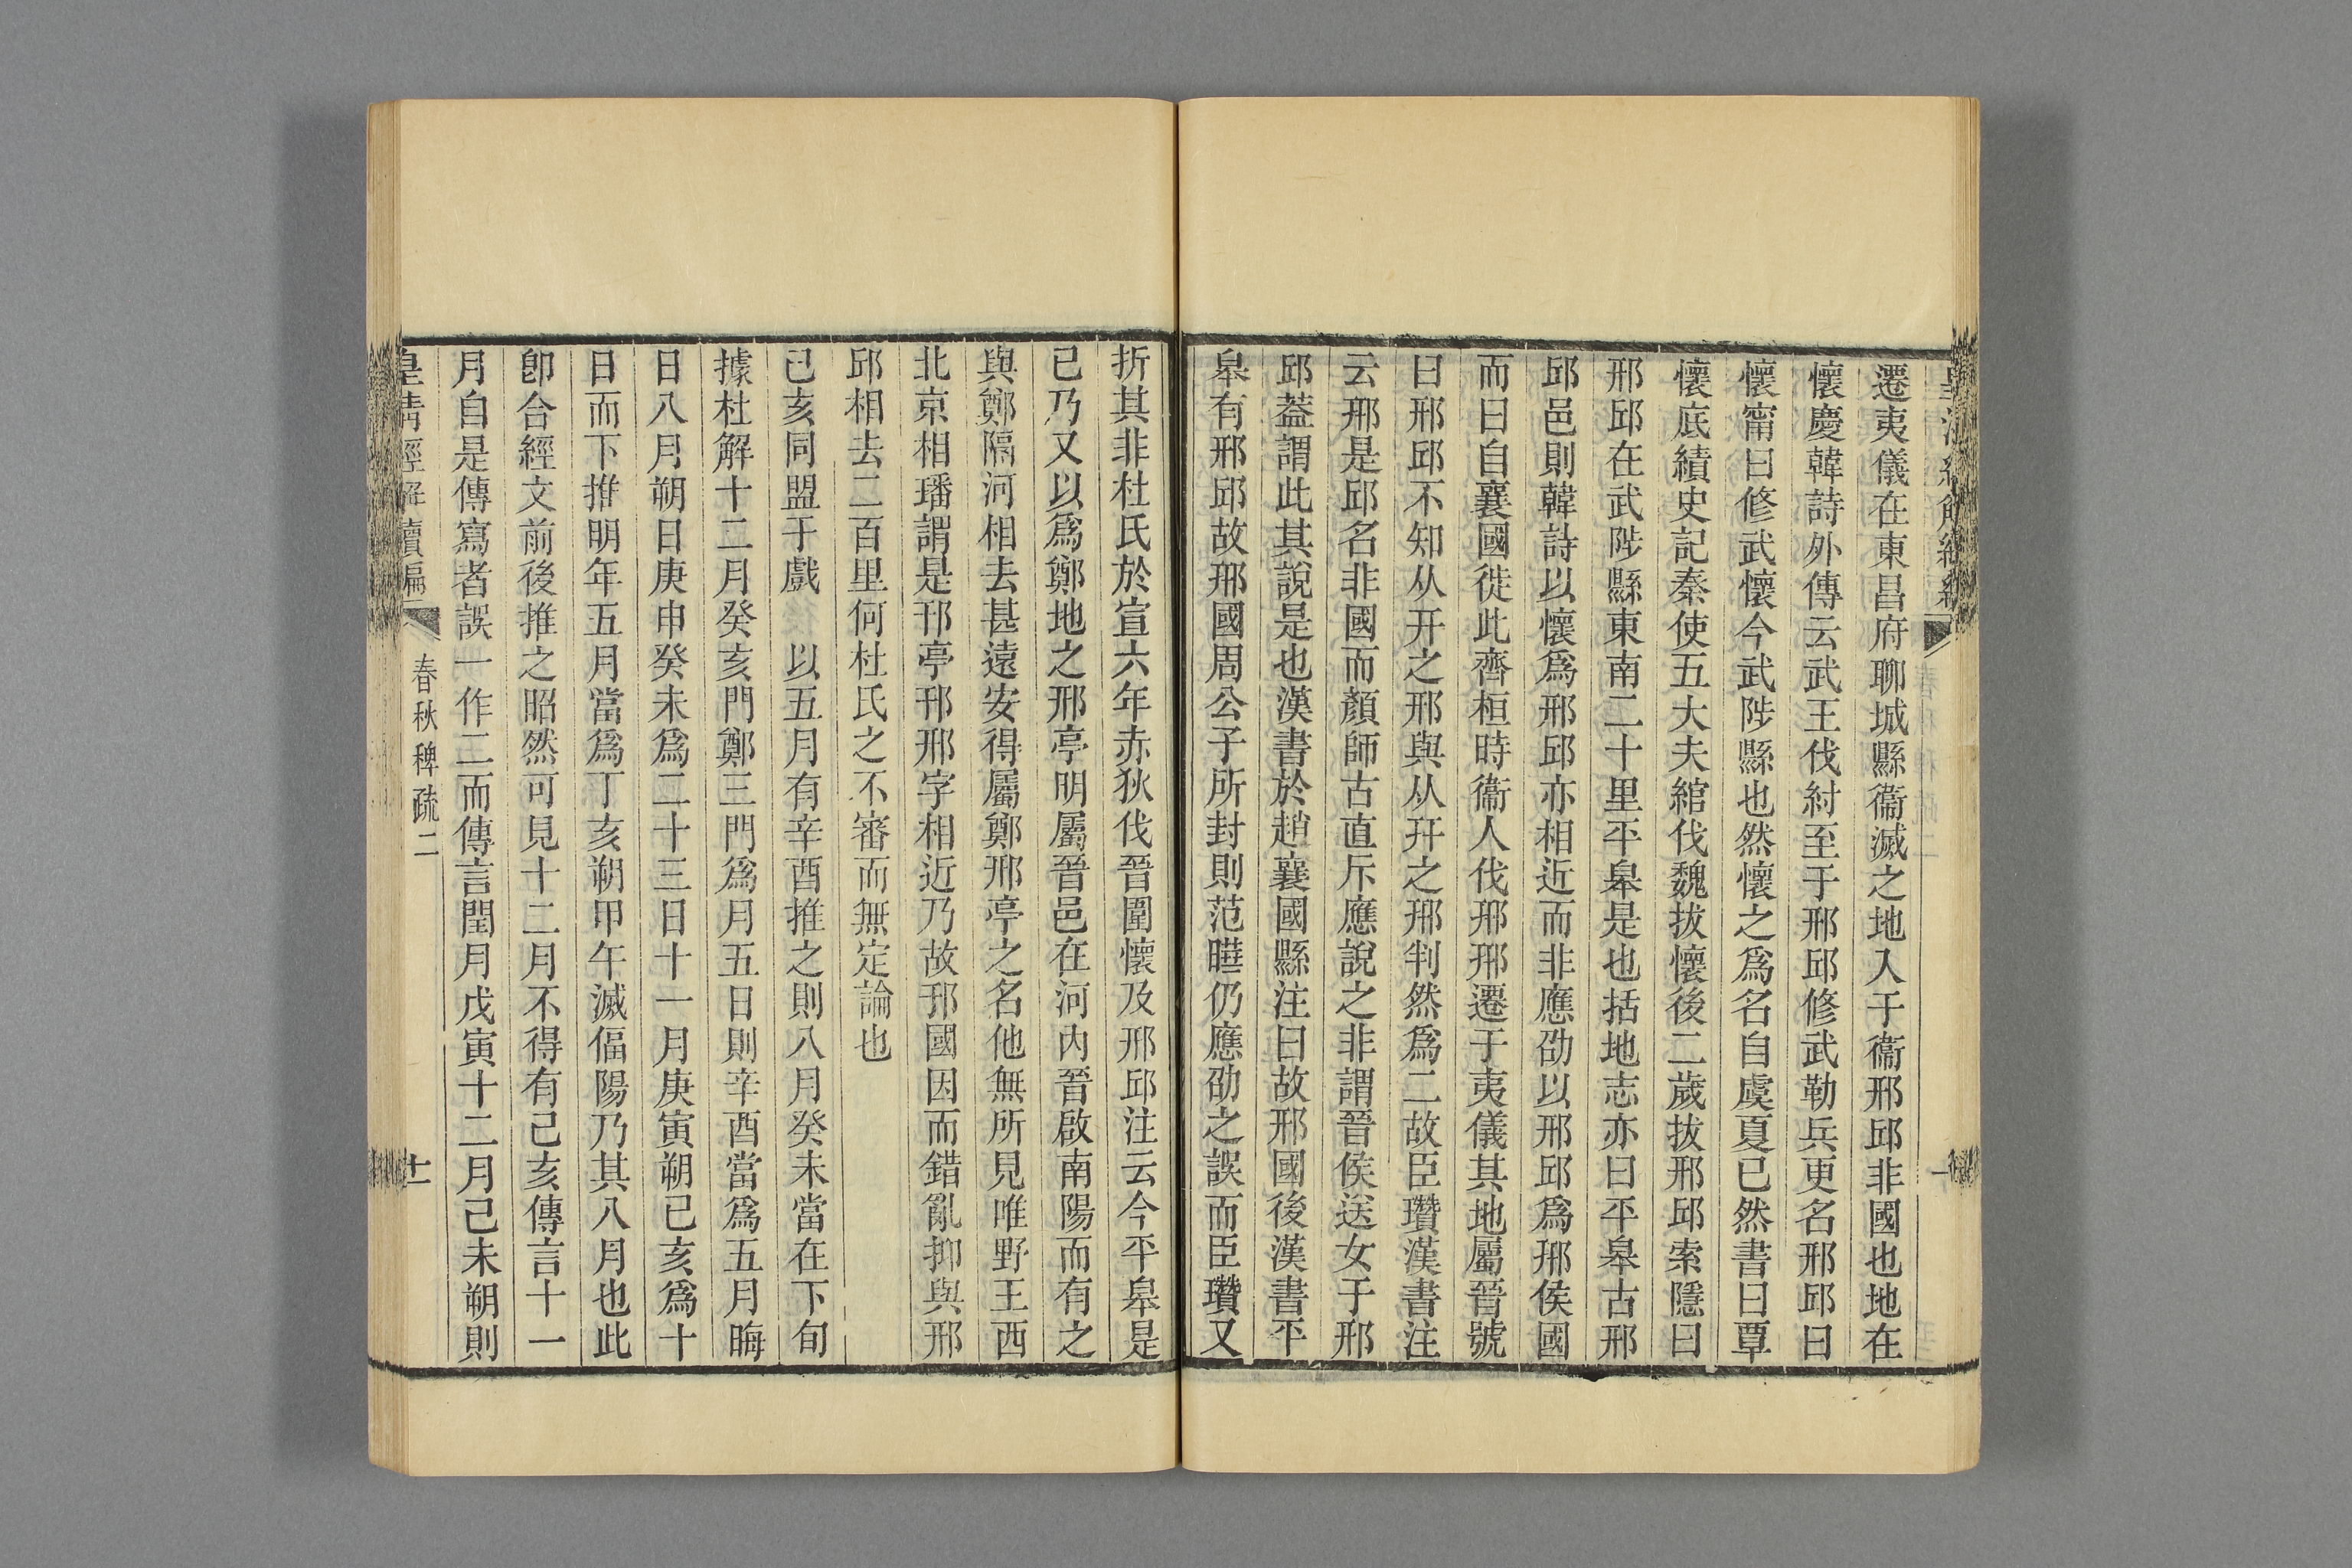 遷夷儀在東昌府聊城縣衞滅之地入于衞邢邱非國也地在
懷慶韓詩外傳云武王伐紂至于邢邱修武勒兵更名邢邱曰
懷甯曰修武懷今武陟縣也然懷之爲名自虞夏已然書曰覃
懷底績史記秦使五大夫綰伐魏拔懷後二歲拔邢邱索隱曰
邢邱在武陟縣東南二十里平皋是也括地志亦曰平皋古邢
邱邑則韓詩以懷爲邢邱亦相近而非應劭以邢邱爲邢侯國
而曰自襄國徙此齊桓時衞人伐邢邢遷于夷儀其地屬晉號
曰邢邱不知从开之邢與从幵之邢判然爲二故臣瓚漢書注
云邢是邱名非國而顏師古直斥應說之非謂晉侯送女于邢
邱蓋謂此其說是也漢書於趙襄國縣注曰故邢國後漢書平
皋有邢邱故邢國周公子所封則范曄仍應劭之誤而臣瓚又
折其非杜氏於宣六年赤狄伐晉圍懷及邢邱注云今平皋是
已乃又以爲鄭地之邢亭明屬晉邑在河內晉啟南陽而有之
與鄭隔河相去甚遠安得屬鄭邢亭之名他無所見唯野王西
北京相璠謂是邘亭邘邢字相近乃故邘國因而錯亂抑與邢
邱相去二百里何杜氏之不審而無定論也
己亥同盟于戲　以五月有辛酉推之則八月癸未當在下旬
據杜解十二月癸亥門鄭三門爲月五日則辛酉當爲五月晦
日八月朔日庚申癸未爲二十三日十一月庚寅朔己亥爲十
日而下推明年五月當爲丁亥朔甲午滅偪陽乃其八月也此
卽合經文前後推之昭然可見十二月不得有己亥傳言十一
月自是傳寫者誤一作二而傳言閏月戊寅十二月己未朔則
皇清經解續編
春秋稗疏二
十一